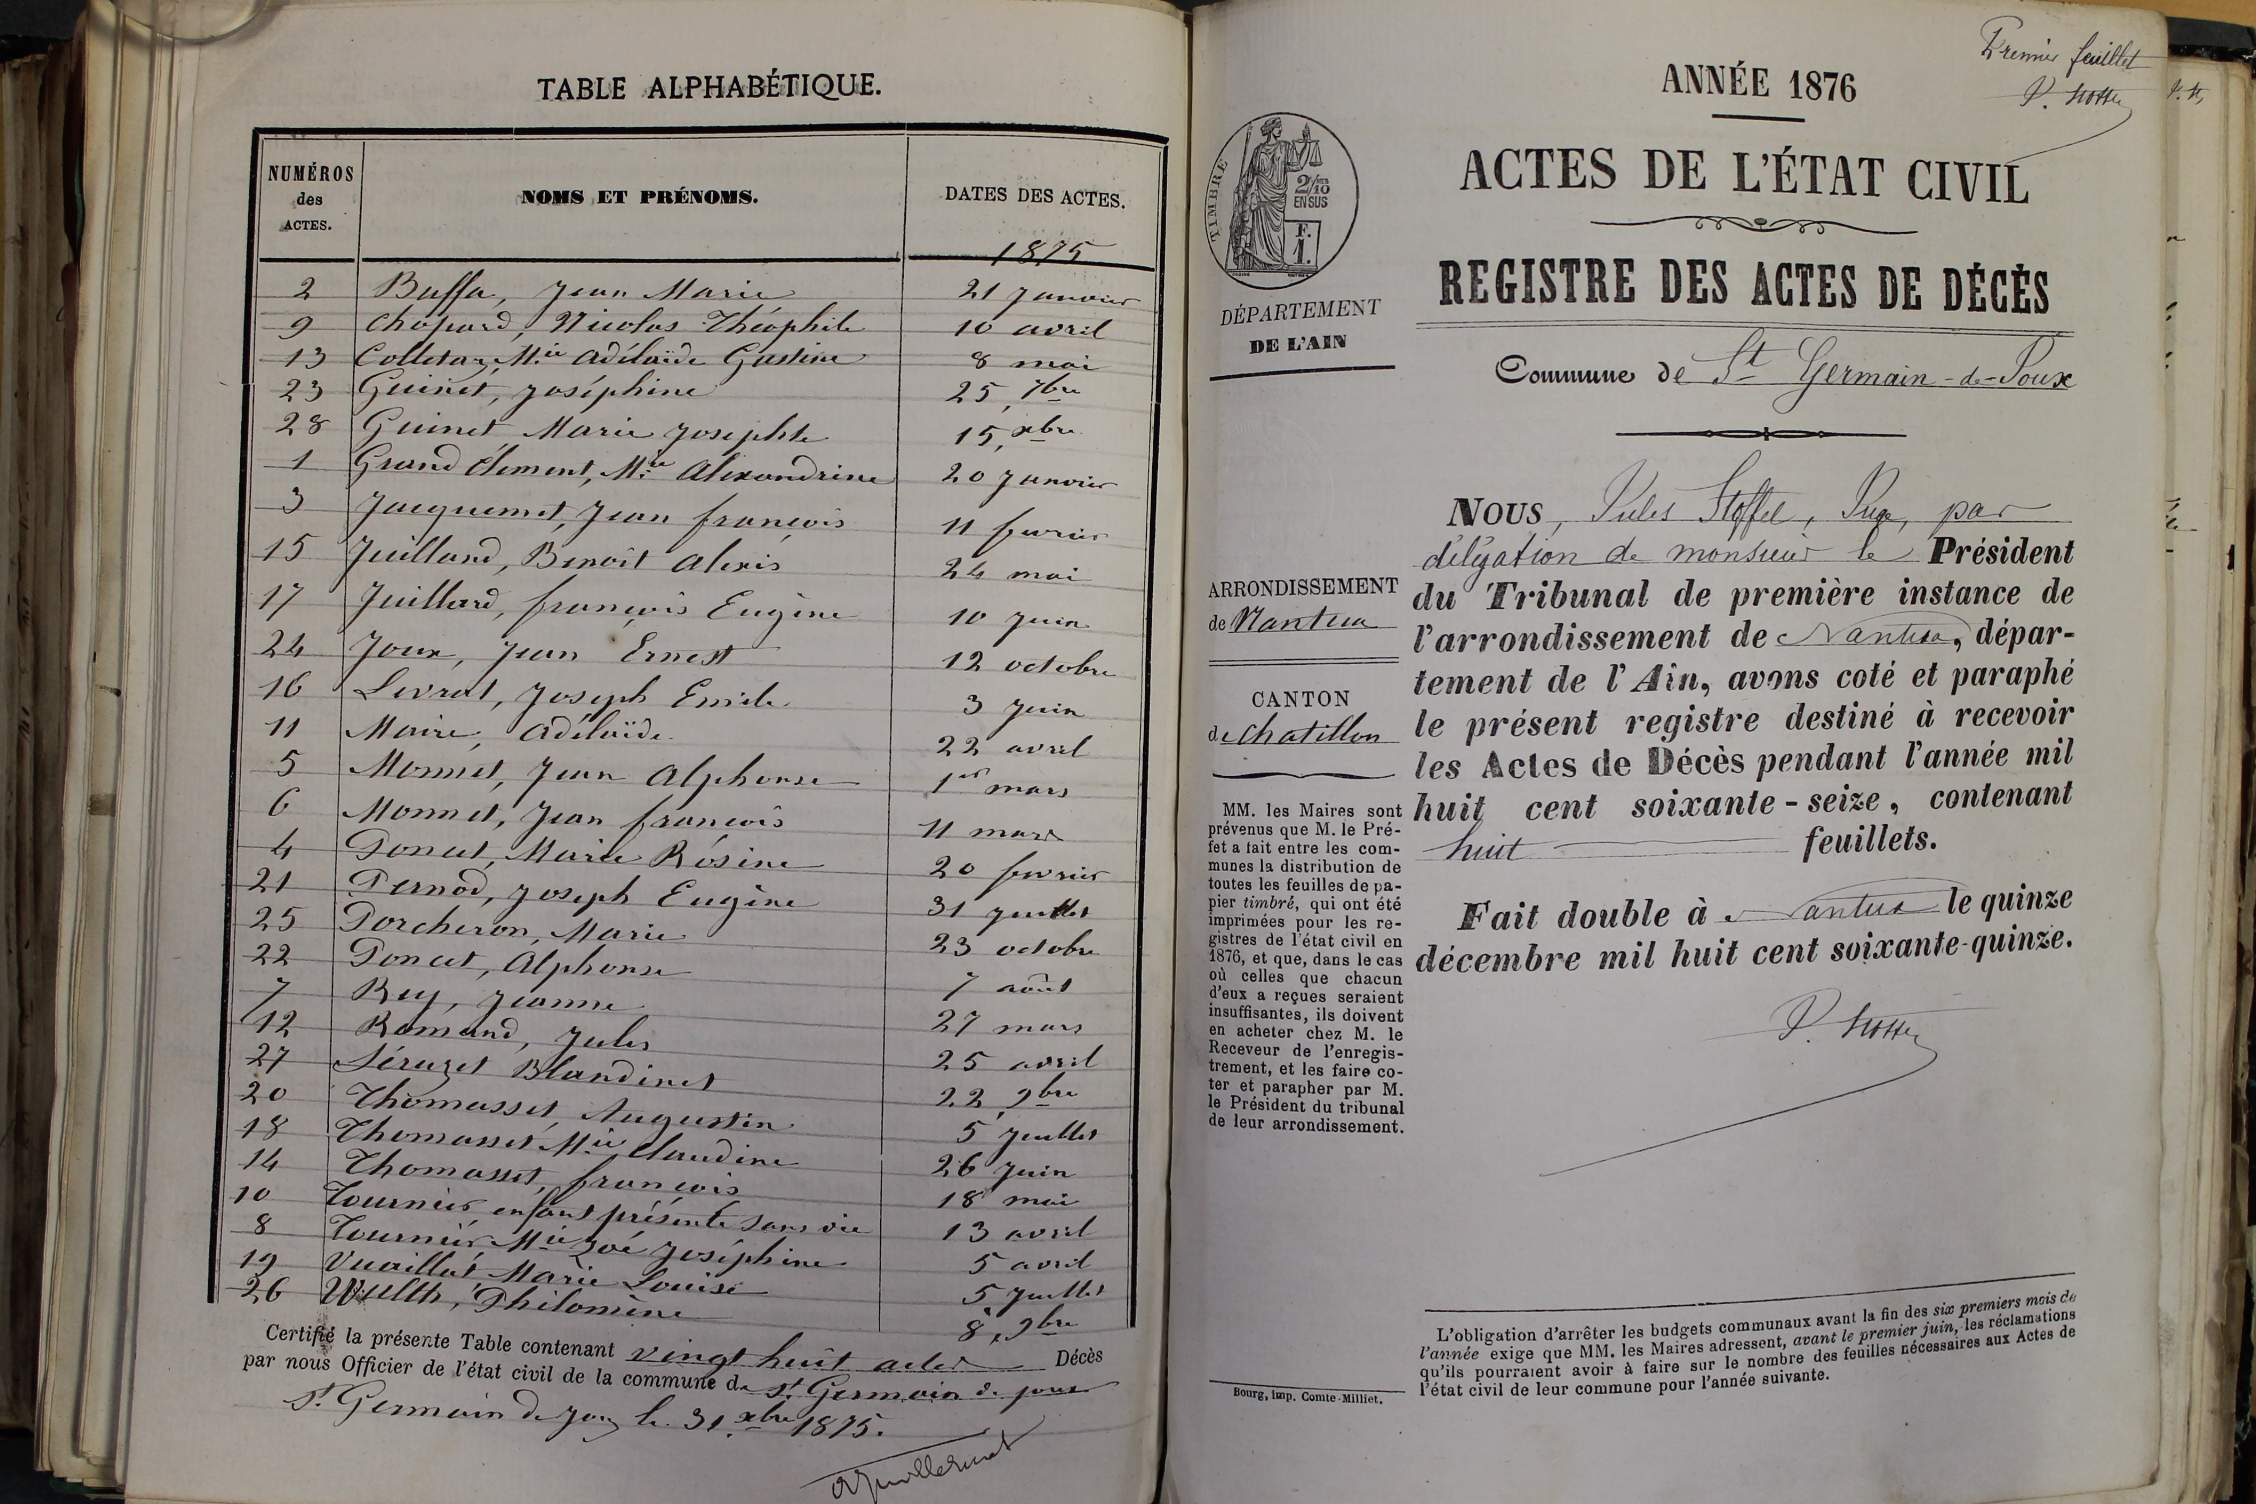 TABLE ALPHABÉTIQUE.
NUMÉROS des ACTES. NOMS ET PRÉNOMS. DATES DES ACTES.
1875
2 Buffa, Jean Marie 21 Janvier
9 Chopard, Nicolas Théophile 10 avril
13 Colletaz, Mie Adélaïde Gustine 8 mai
23 Guinet, Joséphine 25, 7bre
28 Guinet Marie Josephte 15, xbre
1 Grand Clément, Mie Alexandrine 20 Janvier
3 Jacquemet, Jean françois 11 fevrier
15 Juilland, Benoît Alexis 24 mai
17 Juillard, françois Eugène 10 Juin
24 Joux, Jean Ernest 12 octobre
16 Livrat, Joseph Emile 3 Juin
11 Maire, Adélaïde 22 avril
5 Monnet, Jean Alphonse 1er mars
6 Monnet, Jean françois 11 mars
4 Poncet, Marie Rosine 20 fevrier
21 Pernod, Joseph Eugène 31 Juillet
25 Porcheron, Marie 23 octobre
22 Poncet, Alphonse 7 août
7 Rey, Jeanne 27 mars
12 Romand, Jules 25 avril
27 Séruzet Blandinet 22, 9bre
20 Thomasset, Augustin 5 Juillet
18 Thomasset, Mie Claudine 26 Juin
14 Thomasset, françois 18 mai
10 Tournier enfant présenté sans vie 13 avril
8 Tournier Mie Zoé Joséphine 5 avril
19 Vuaillat, Marie Louise 5 Juillet
26 Wulth, Philomène 8, 9bre
Certifié la présente Table contenant vingt huit actes Décès
par nous Officier de l'état civil de la commune de St Germain de joux
St. Germain de Joux le 31 xbre 1875.
Premier feuillet
ANNÉE 1876
ACTES DE L'ÉTAT CIVIL
REGISTRE DES ACTES DE DÉCÈS
Commune de St Germain-de-Joux
TIMBRE
2/10
EN SUS
F.
1.
DÉPARTEMENT
DE L'AIN
ARRONDISSEMENT
de Nantua
CANTON
de Chatillon
MM. les Maires sont
prévenus que M. le Pré-
fet a fait entre les com-
munes la distribution de
toutes les feuilles de pa-
pier timbré, qui ont été
imprimées pour les re-
gistres de l'état civil en
1876, et que, dans le cas
où celles que chacun
d'eux a reçues seraient
insuffisantes, ils doivent
en acheter chez M. le
Receveur de l'enregis-
trement, et les faire co-
ter et parapher par M.
le Président du tribunal
de leur arrondissement.
Bourg, imp. Comte-Milliet.
NOUS, Jules Stoffel, Juge, par
délégation de monsieur le Président
du Tribunal de première instance de
l'arrondissement de Nantua, dépar-
tement de l'Ain, avons coté et paraphé
le présent registre destiné à recevoir
les Actes de Décès pendant l'année mil
huit cent soixante-seize, contenant
huit feuillets.
Fait double à Nantua le quinze
décembre mil huit cent soixante-quinze.
L'obligation d'arrêter les budgets communaux avant la fin des six premiers mois de
l'année exige que MM. les Maires adressent, avant le premier juin, les réclamations
qu'ils pourraient avoir à faire sur le nombre des feuilles nécessaires aux Actes de
l'état civil de leur commune pour l'année suivante.